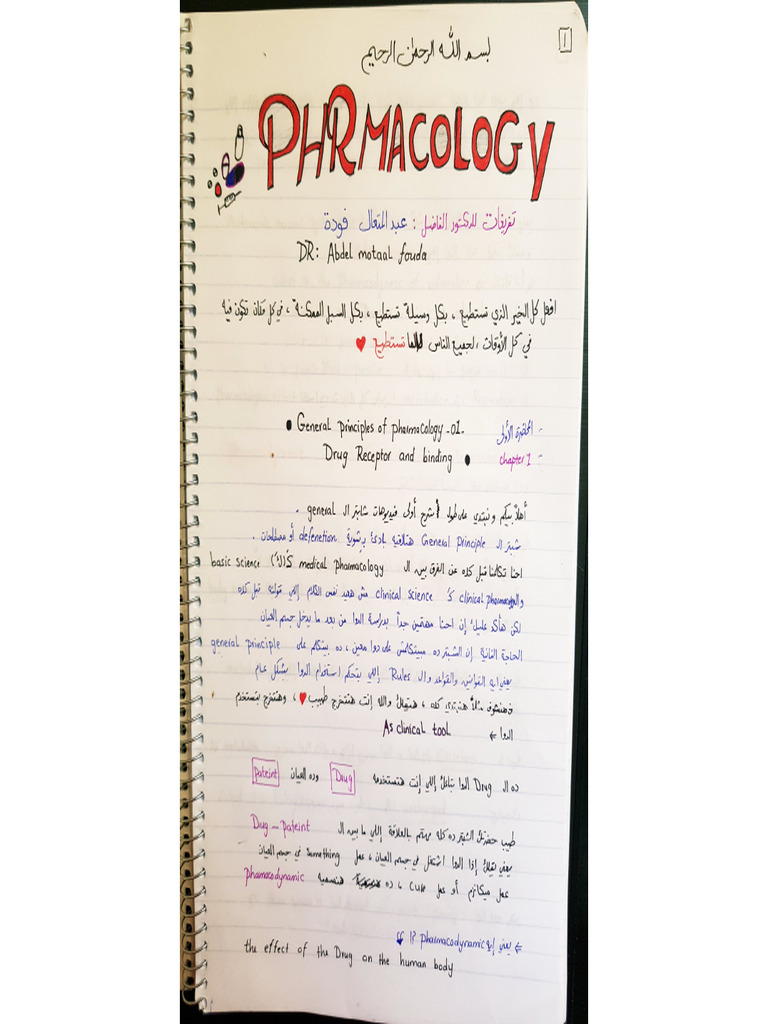 1
بسم الله الرحمن الرحيم
PHRMACOLOGY
تفريغات للدكتور الفاضل : عبد المتعال فودة
DR: Abdel motaal fouda
افعل كل الخير الذي تستطيع ، بكل وسيلة تستطيع ، بكل السبل الممكنة ، في كل مكان تكون فيه
في كل الأوقات ، لجميع الناس طالما تستطيع ♥
- المحاضرة الأولى General principles of pharmacology -01-
- chapter 1 Drug Receptor and binding
أهلا بيكم ونبتدي على طول شرح أولى فيديوهات شابتر ال general .
شبتر ال General Principle هتلاقيه بادئ بشوية defenetion أو مصطلحات .
احنا تكلمنا قبل كده عن الفرق بين ال medical pharmacology كـ basic science
وال clinical pharmacology كـ clinical science مش هعيد نفس الكلام اللي قولته قبل كده
لكن هأكد عليك إن احنا مهتمين جداً بدراسة الدوا من بعد ما يدخل جسم العيان
الحاجة التانية إن الشبتر ده مبيتكلمش على دوا معين ، ده بيتكلم على general principle
يعني ايه القوانين والقواعد وال Rules إللي بتحكم استخدام الدوا بشكل عام
فهنشوف مثلاً هنبتدي كده ، هنقولك والله إنت هتتخرج طبيب ♥ ، وهتتخرج لتستخدم
الدوا ← As clinical tool
ده ال Drug الدوا بتاعك إللي إنت هتستخدمه Drug وده العيان pateint
طيب حضرتك الشبتر ده كله مهتم بالعلاقة إللي ما بين ال Dug - pateint
يعني نقولك إذا الدوا اشتغل في جسم العيان ، عمل something في جسم العيان
عمل ميكانزم أو عمل cure ، ده هنسميه phamacodynamic
← يعني إيه pharmacodynamic ؟!
the effect of the Drug on the human body